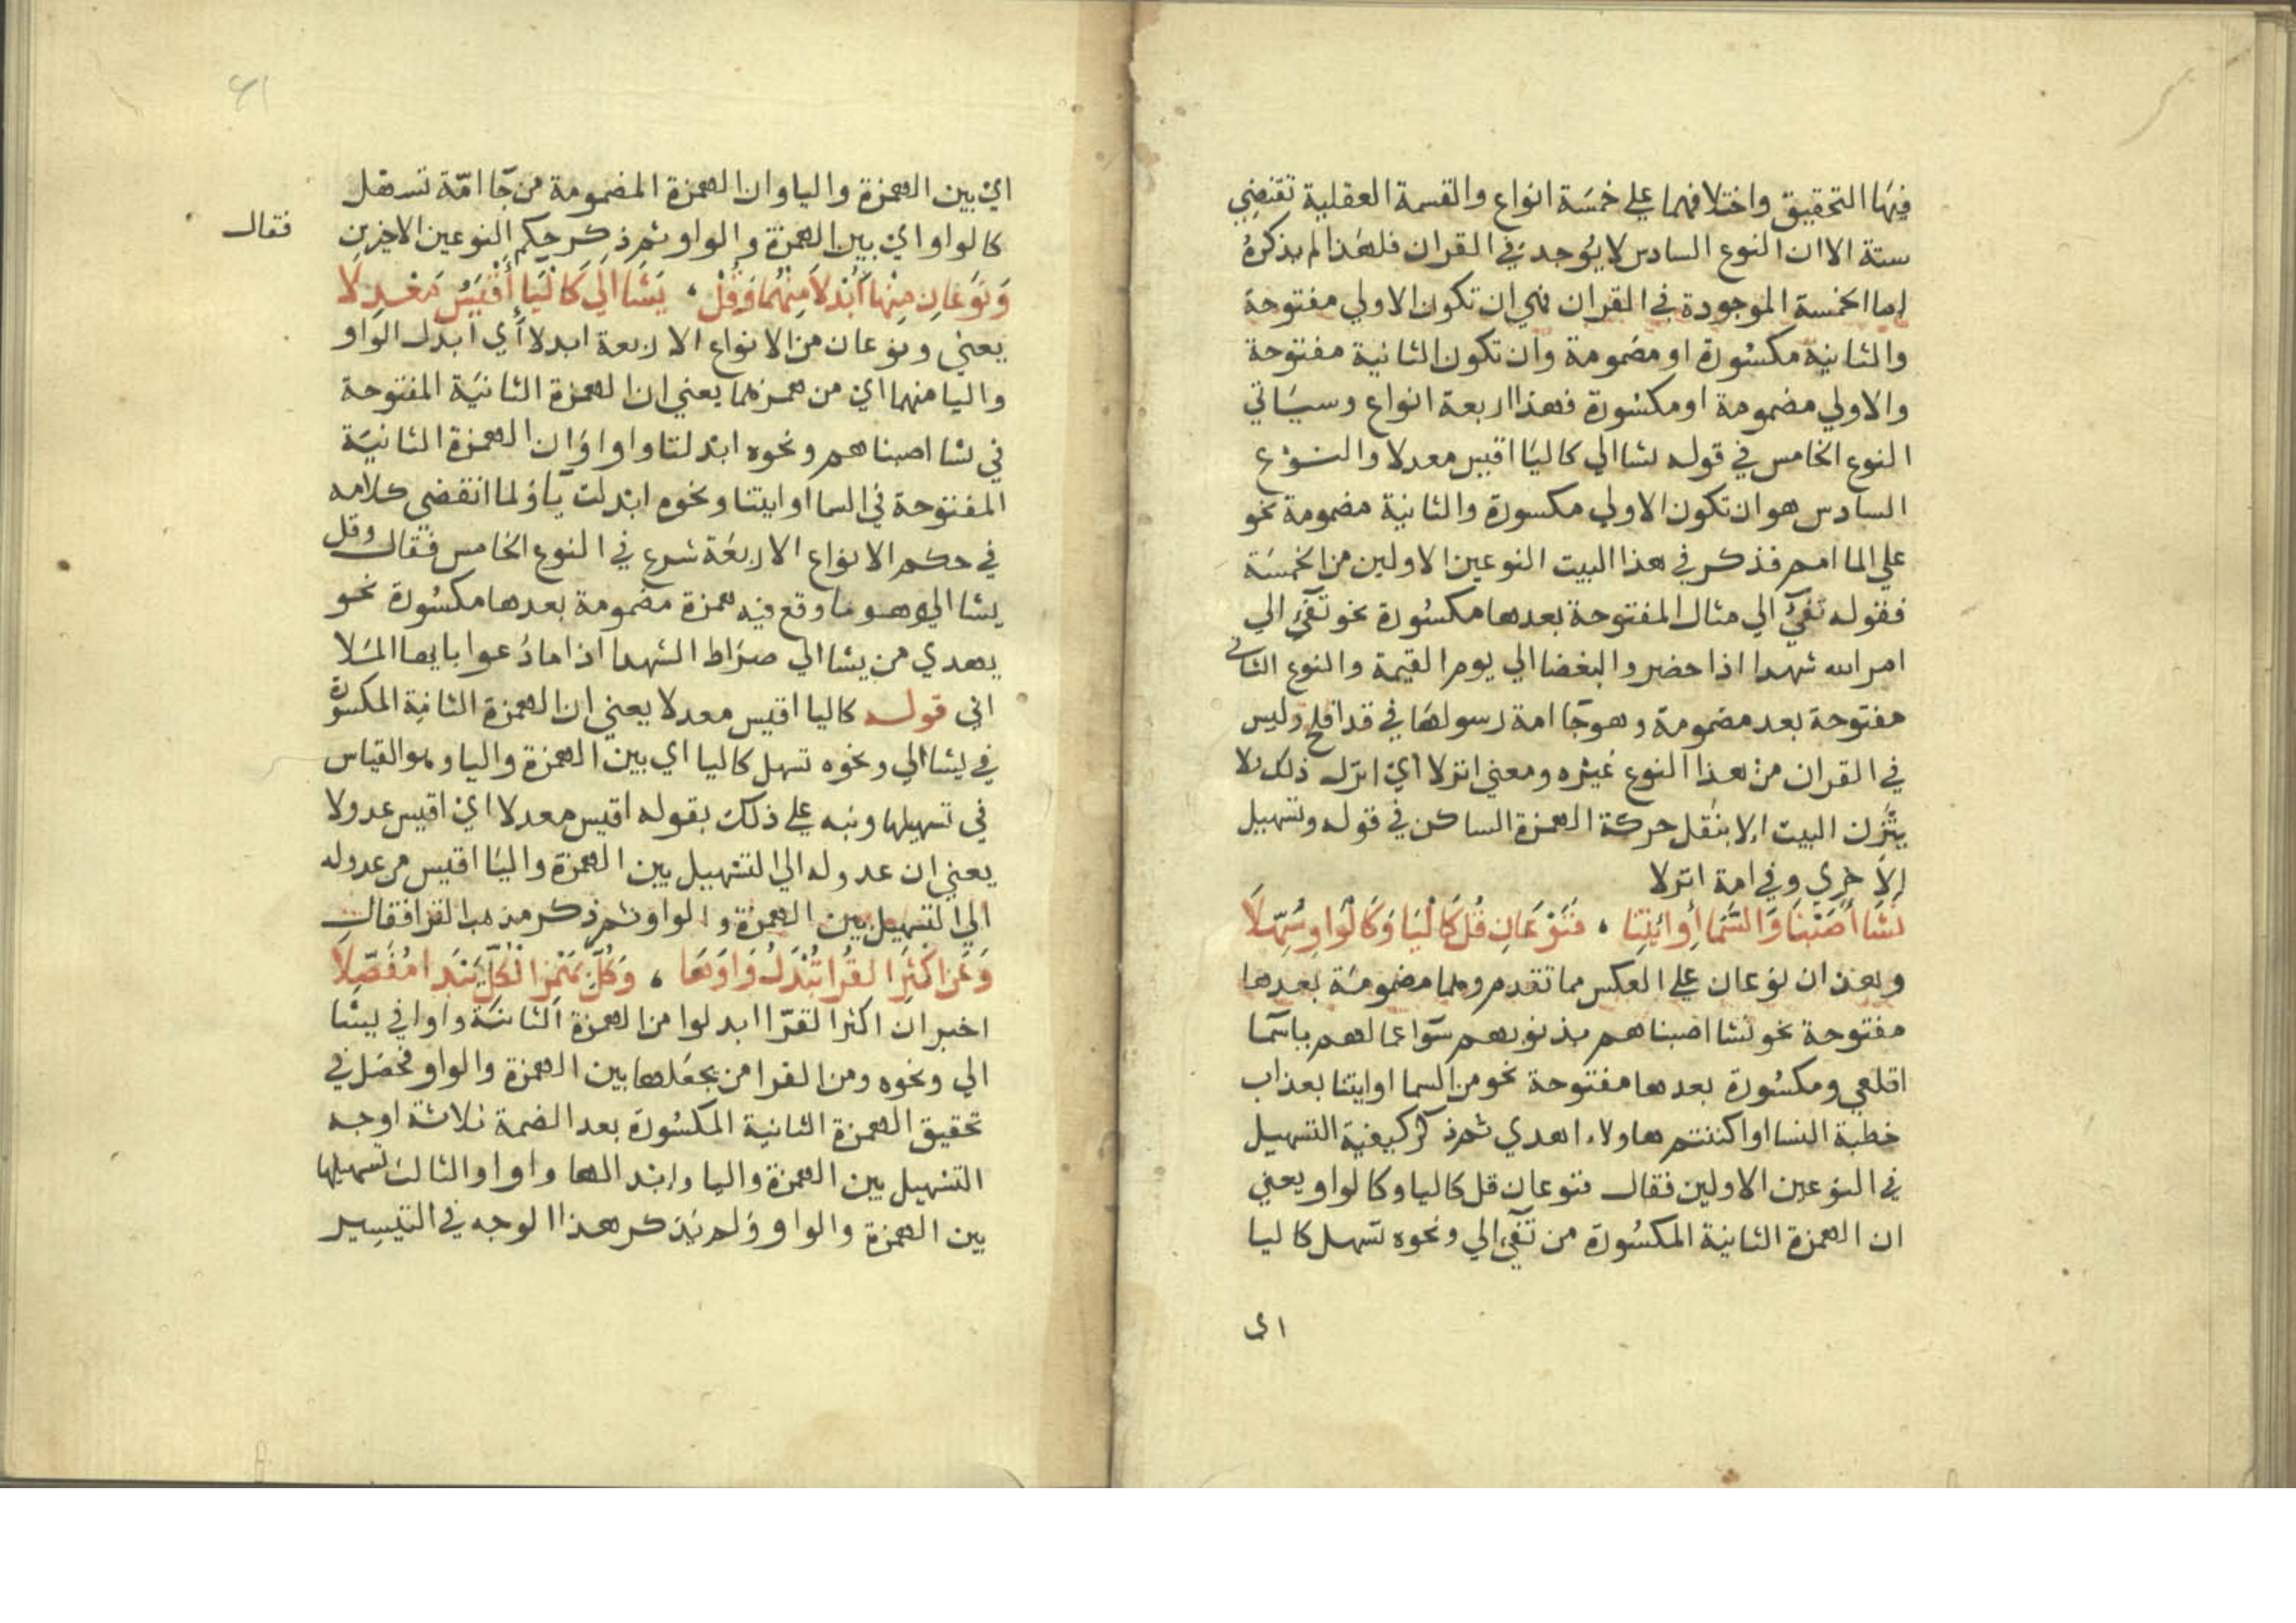 فيها التحقيق واختلافهما علي خمسة انواع والقسمة العقلية تقتضي
ستة الا ان النوع السادس لا يوجد في القران فلهذا لم يذكره
اما الخمسة الموجودة في القران فهي ان تكون الاولي مفتوحة
والثانية مكسورة او مضمومة وان تكون الثانية مفتوحة
والاولي مضمومة او مكسورة فهذا اربعة انواع وسياتي
النوع الخامس في قوله يشا الي كاليا اقيس معدلا والنوع
السادس هو ان تكون الاولي مكسورة والثانية مضمومة نحو
علي الما امم فذكر في هذا البيت النوعين الاولين من الخمسة
فقوله تفيٓ الي مثال المفتوحة بعدها مكسورة نحو تفيٓ الي
امر الله شهدا اذ احضر والبغضا الي يوم القيمة والنوع الثاني
مفتوحة بعد مضمومة وهو جٓا امة رسولها في قد افلح وليس
في القران من هذا النوع غيره ومعني انزلا اي انزل ذلك ولا
يتزن البيت الا بنقل حركة الهمزة الساكن في قوله وتسهيل
الاخري وفي امة انزلا
نَشَا أَصَبْنَا وَالسَّمَا أَوِ ائْتِنَا ، فَنَوْعَانِ قُل كَالْيَا وَكَالْوَاوِ سُهِّلَا
وهذان نوعان علي العكس مما تقدم وهما مضمومة بعدها
مفتوحة نحو نشا اصبناهم بذنوبهم سوٓا اعمالهم ياسٓما
اقلعي ومكسورة بعدها مفتوحة نحو من السما او ايتنا بعذاب
خطبة النسا او اكننتم هاولاء اهدي ثم ذكر كيفية التسهيل
في النوعين الاولين فقال فنوعان قل كاليا وكالواو يعني
ان الهمزة الثانية المكسورة من تفيٓ الي ونحوه تسهل كاليا
اي
اي بين الهمزة واليا وان الهمزة المضمومة من جٓا امّة تسهل
كالواو اي بين الهمزة والواو ثم ذكر حكم النوعين الاخرين
فقال
وَنَوْعَانِ مِنْهَا أُبْدِلَا مِنْهُمَا وَقُلْ ، يَشَا الَى كَالْيَا أَقْيَسُ مَعْدِلَا
يعني ونوعان من الانواع الاربعة ابدلا اي ابدل الواو
واليا منهما اي من همزهما يعني ان الهمزة الثانية المفتوحة
في نشا اصبناهم ونحوه ابدلتا واوا وان الهمزة الثانية
المفتوحة في السما او ايتنا ونحوه ابدلت يا ولما انقضي كلامه
في حكم الانواع الاربعة شرع في النوع الخامس فقال وقل
يشا الي وهو ما وقع فيه همزة مضمومة بعدها مكسورة نحو
يهدي من يشا الي صراط الشهدا اذا ما دعوا يايها الملا
اني قوله كاليا اقيس معدلا يعني ان الهمزة الثانية المكسورة
في يشا الي ونحوه تسهل كاليا اي بين الهمزة واليا وهو القياس
في تسهيلها ونبه علي ذلك بقوله اقيس معدلا اي اقيس عدولا
يعني ان عدوله الي التسهيل بين الهمزة واليا اقيس من عدوله
الي التسهيل بين الهمزة والواو ثم ذكر مذهب القرا فقال
وَعَنْ اَكْثَرِ القُرَّا تُبْدَلُ وَاوُهَا ، وَكُلٌّ بِهَمْزِ الْكُلِّ يَبْدَا مُفَصِّلَا
اخبر ان اكثر القرّا ابدلوا من الهمزة الثانية واوا في يشا
الي ونحوه ومن القرا من يجعلها بين الهمزة والواو فحصل في
تحقيق الهمزة الثانية المكسورة بعد الضمة ثلاثة اوجه
التسهيل بين الهمزة واليا وابدالها واوا والثالث تسهيلها
بين الهمزة والواو ولم يذكر هذا الوجه في التيسير